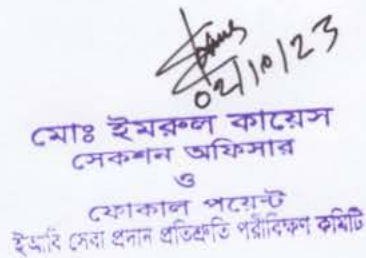 ০২/১০/২৩
মোঃ ইমরুল কায়েস
সেকশন অফিসার
ও
ফোকাল পয়েন্ট
সেবা প্রদান প্রতিশ্রুতি পরীবিক্ষণ কমিটি